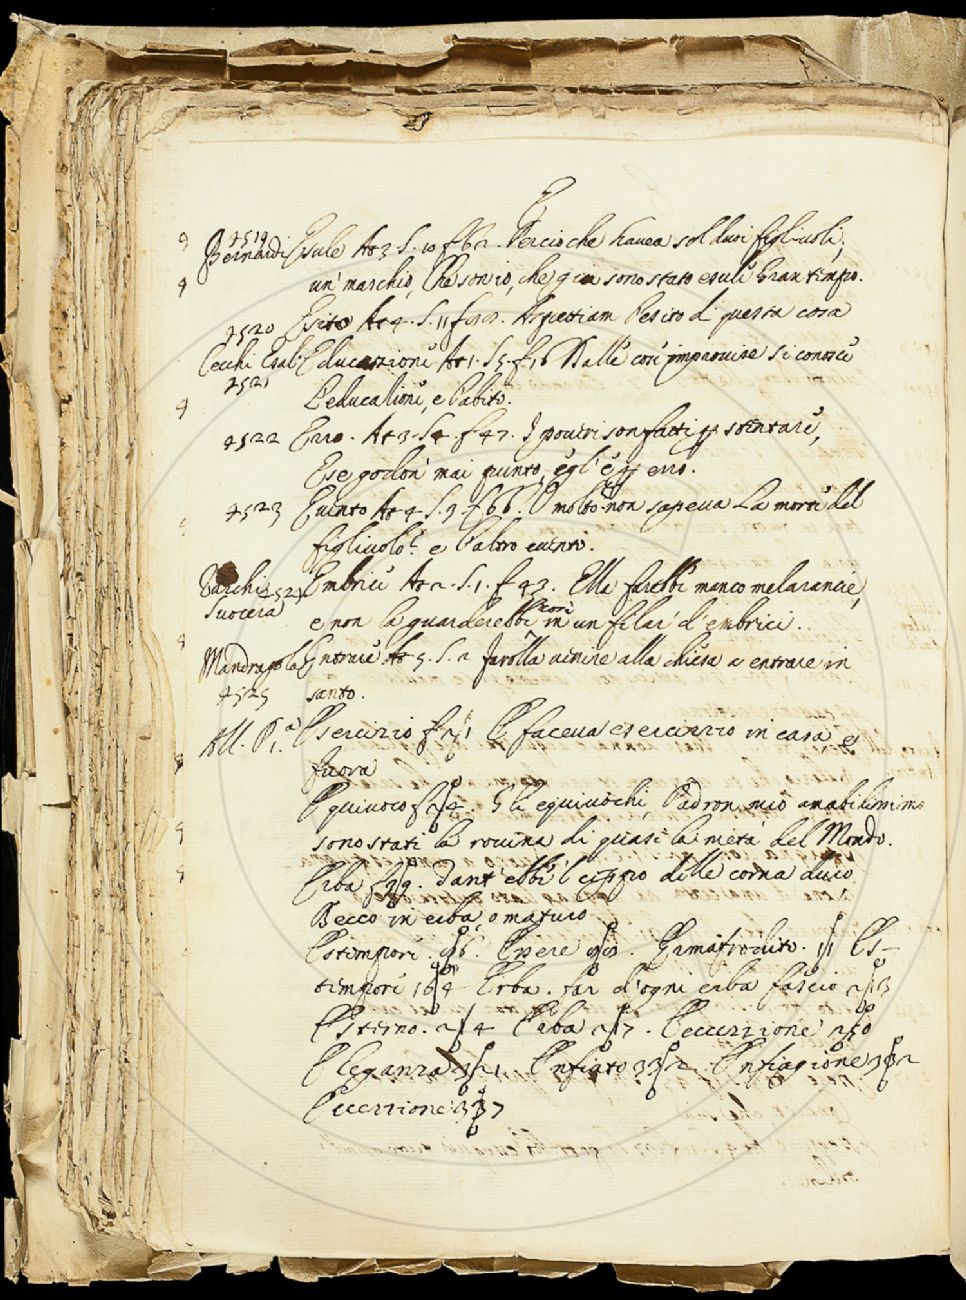 E
4519
Bernardi Esule At 3 S. 10 f 62. Percioche havea sol duoi figliuoli,
un' maschio, che son io, che gia sono stato esule gran tempo.
4520 Esito At 4. S. 11 Aspettiam l'esito di questa cosa
Cecchi Esal: Educazione At 1. S 5. f 16 Dalle cose improvise si conosce
4521 l'educatione, e l'abito.
4522 Erro. At 3. S 4. f 47. I poveri son fatti p stentare,
E se godon' mai punto, egl' è p erro.
4523 Evento At 4. S. 9. f 66. O molto non sapeva la morte del
figliuolo? e l'altro evento.
Varchi 4524 Embrici At 2. S. 1. f 43. Ella farebbe manco melarancie,
Suocera e non la guarderebbe in un filar' d'embrici.
Mandragola Entrare At 5. S. 2 farolla venire alla chiesa e entrare in
4525 santo.
All. P. 1.a Esercizio E faceva esercizio in casa e
fuora
Equivoco Gli equivochi, Padron mio amabilissimo
sono stati la rovina di quasi la metà del Mondo.
Erba f 29. dant' ebbe l ceppo delle corna duro
Becco in erba, o maturo
Estempore. Essere Ermafrodito. Es-
tempore Erba. far d'ogni erba fascio
Esterno. Erba Eccezzione
Eleganza Enfiato Enfiagione
Eccezzione